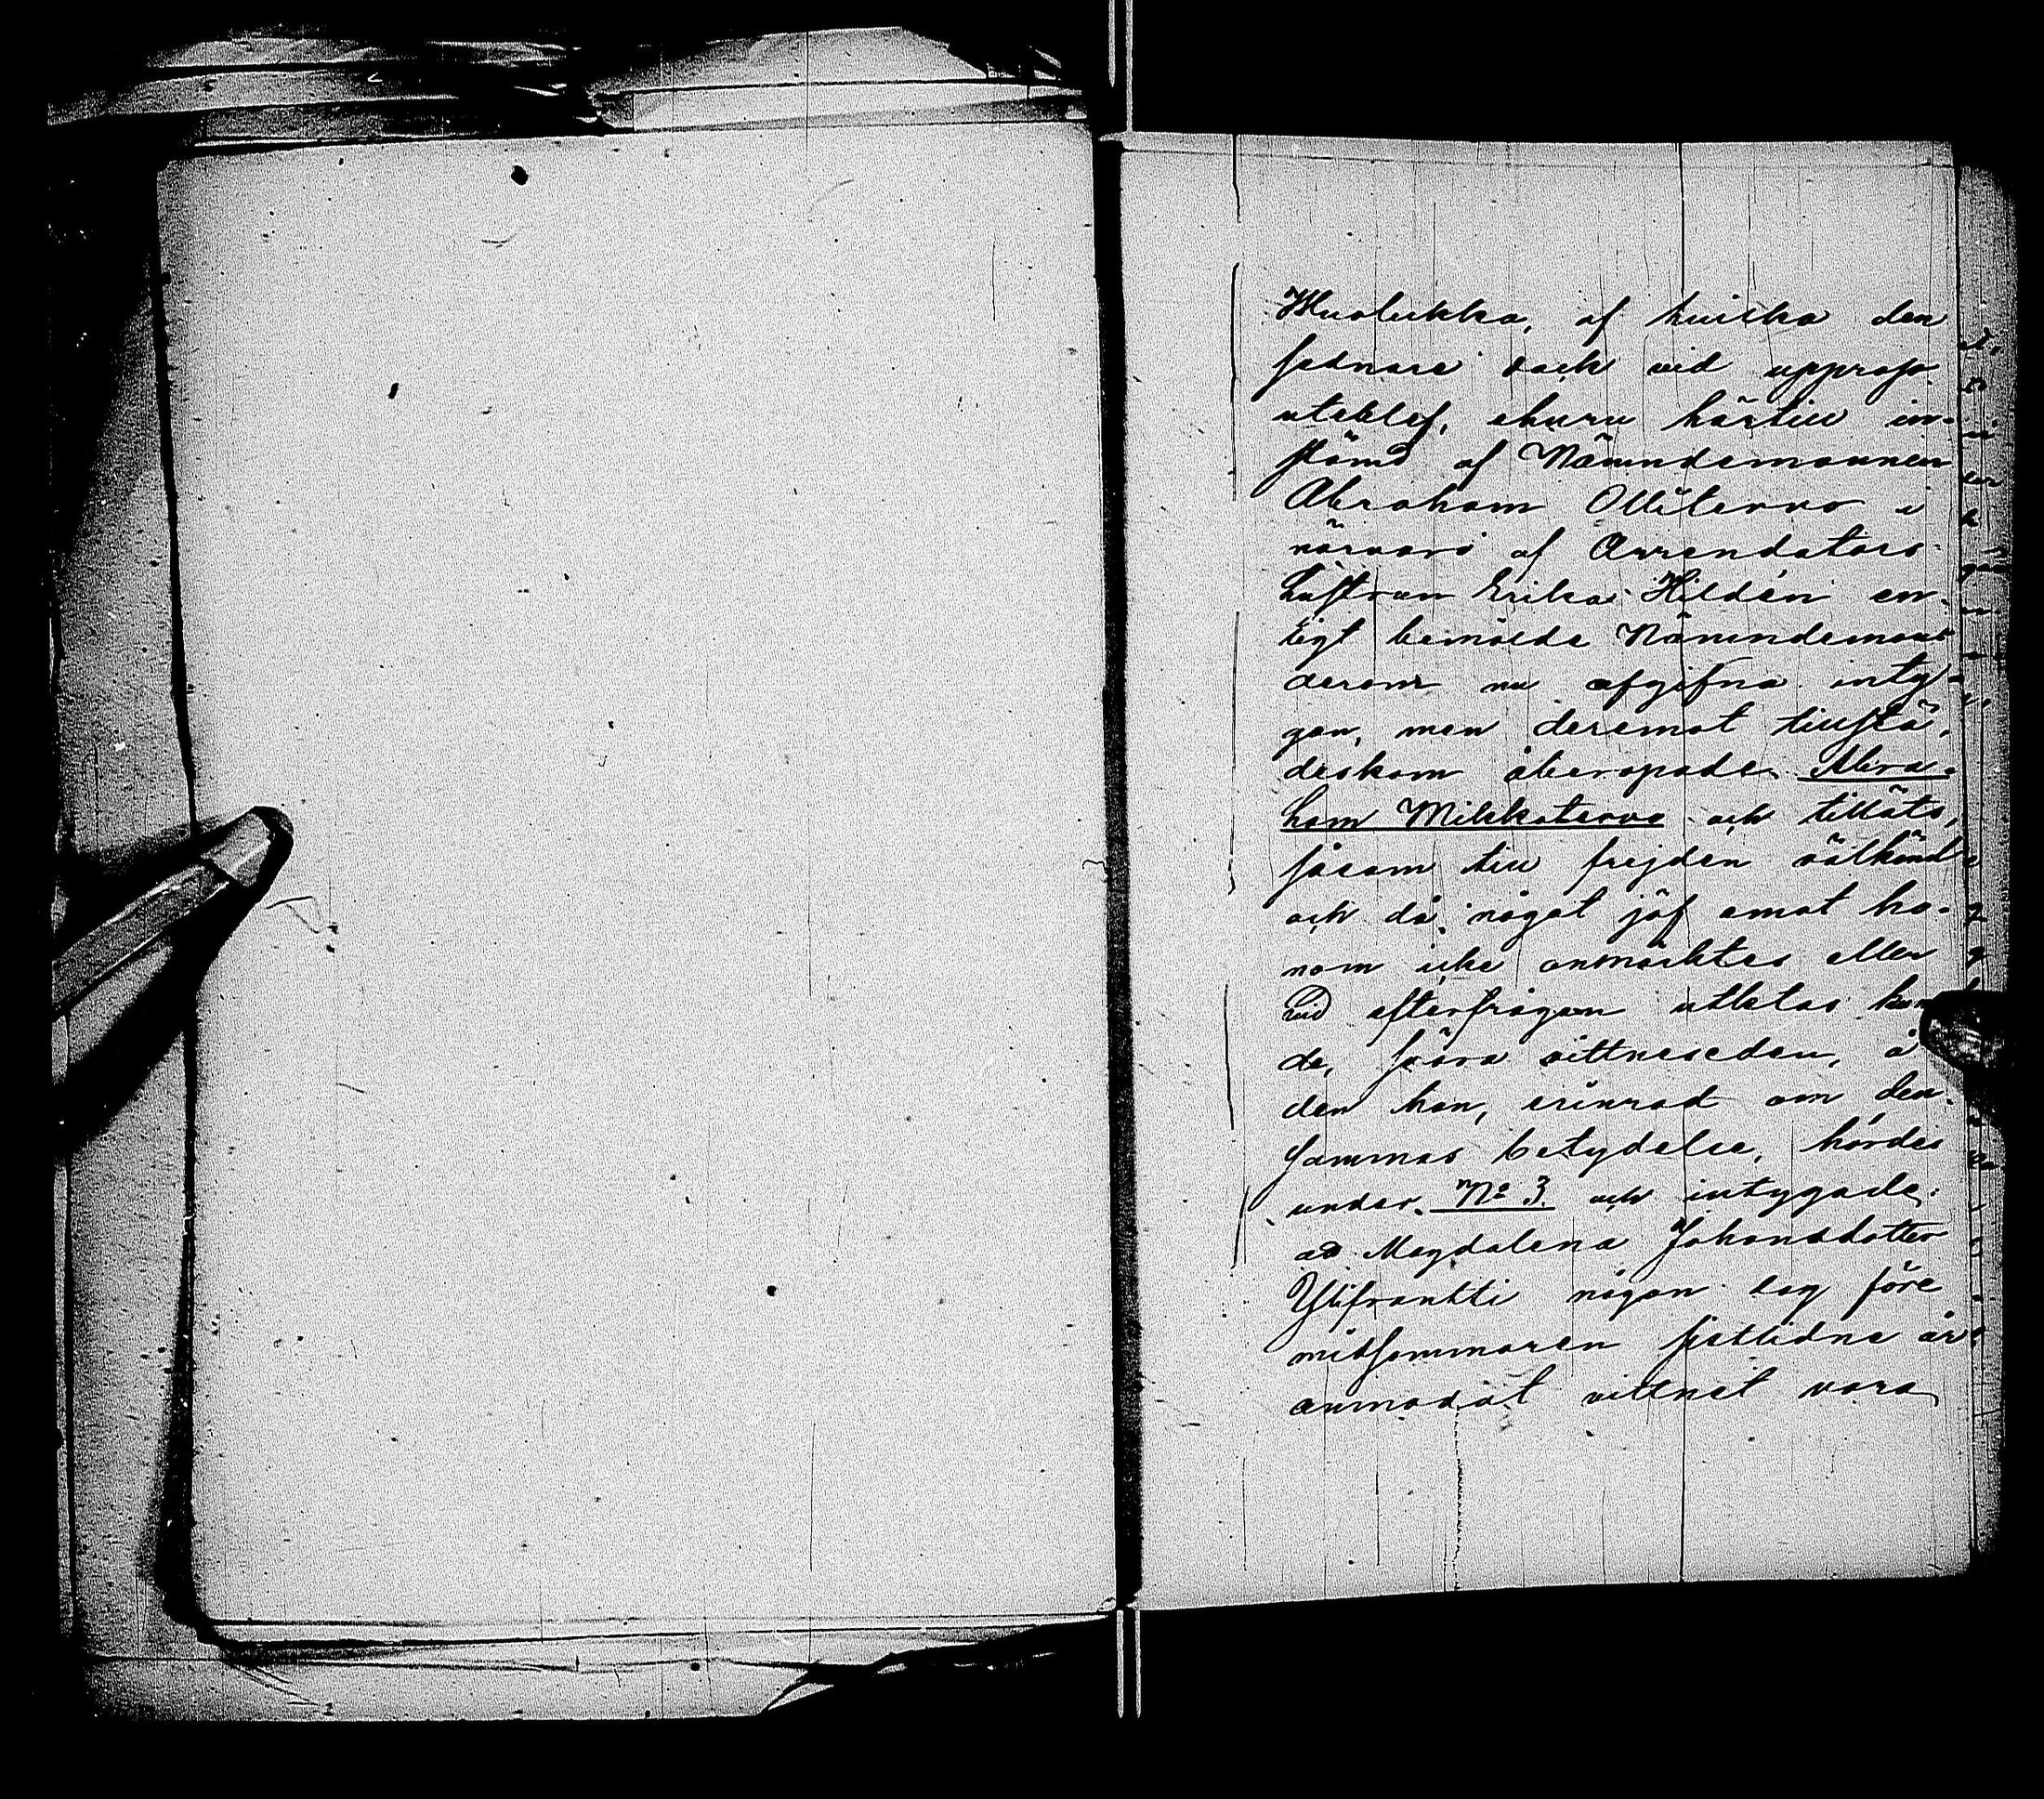 Huolukka, af hvilka den
sednare dock vid upprop
uteblef, ehuru härtill in-
stämd af Nämndemannen
Abraham Ollitervo i
närvaro af Arrendators-
hustrun Erika Hildén en-
ligt bemälde Nämndemans
derom nu afgifna inty-
gan, men deremot tillstä-
deskom åberopade Abra-
ham Mikkatervo och tilläts,
såsom till frejden välkänd
och då något jäf emot ho-
nom icke anmärktes eller
vid efterfrågan utletas kun
de, svära vittneseden, å
den han, erinrad om den-
sammas betydelse, hördes
under No 3 och intygade:
ad Magdalena Johansdotter
Ylifrantti någon dag före
midsommaren sistlidne år
anmodat vittnet vara